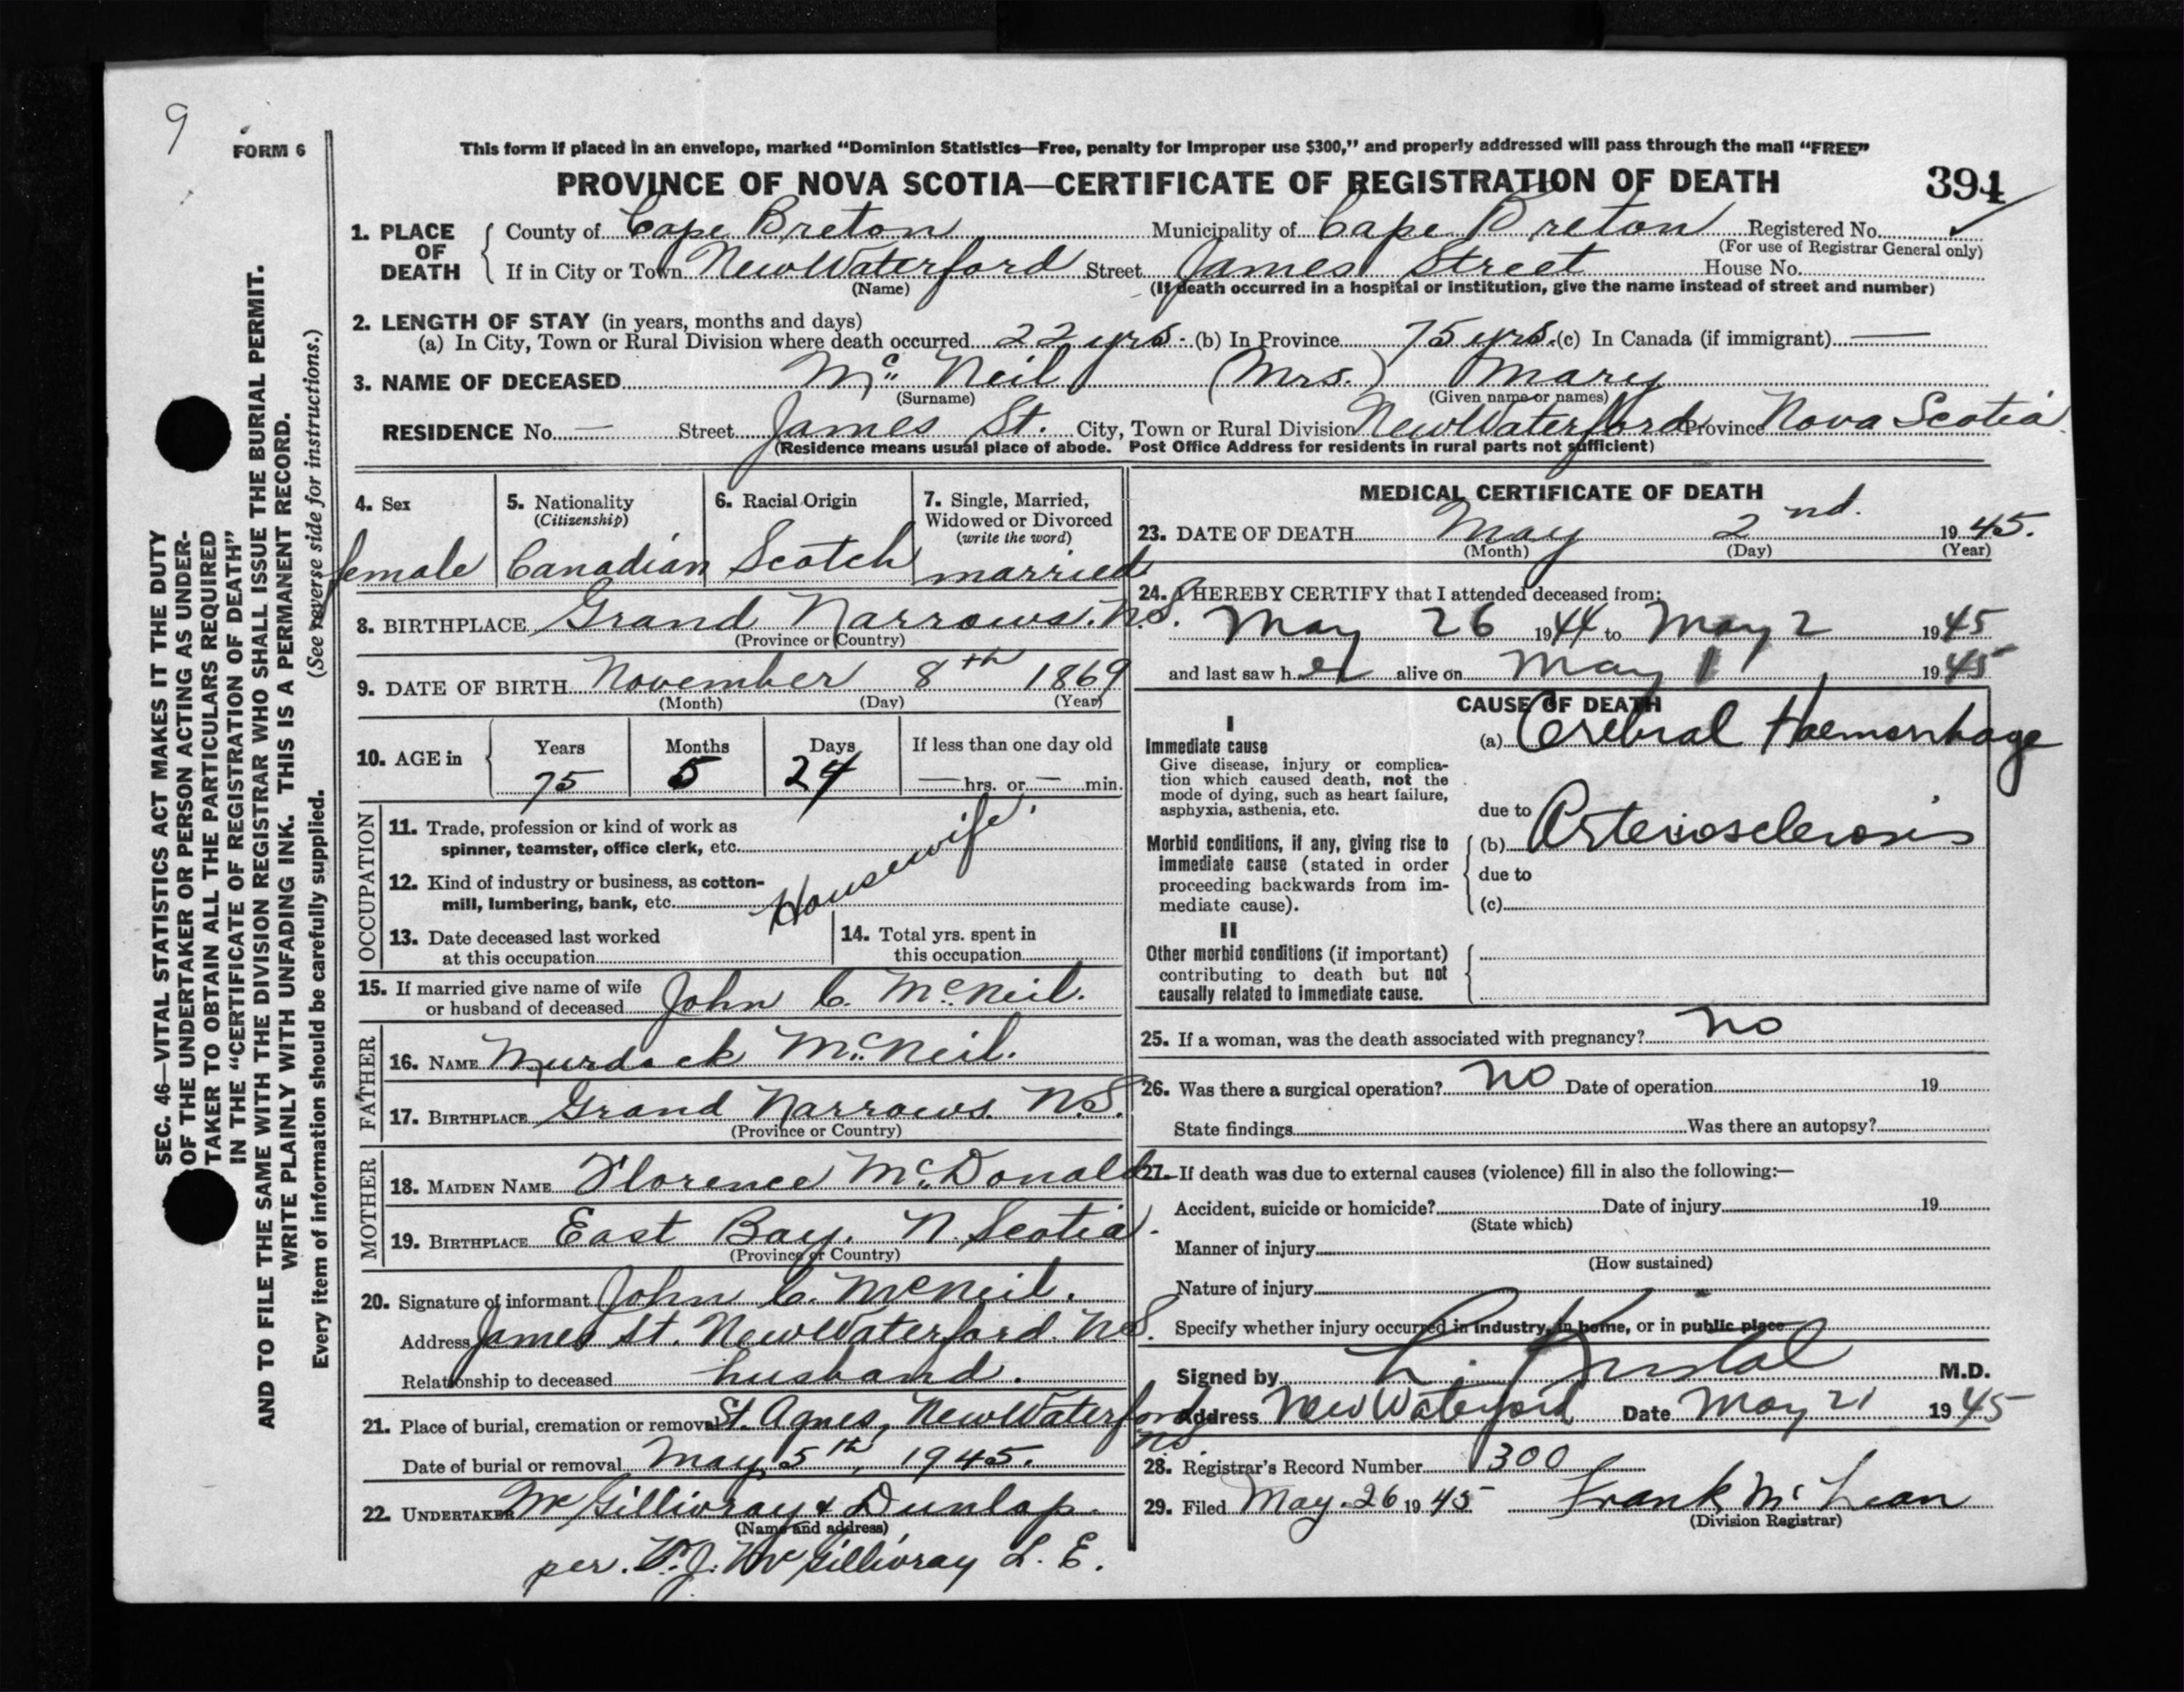 9
FORM 6
This form if placed in an envelope, marked “Dominion Statistics—Free, penalty for improper use $300,” and properly addressed will pass through the mail “FREE”
PROVINCE OF NOVA SCOTIA—CERTIFICATE OF REGISTRATION OF DEATH 391
SEC. 46—VITAL STATISTICS ACT MAKES IT THE DUTY
OF THE UNDERTAKER OR PERSON ACTING AS UNDER-
TAKER TO OBTAIN ALL THE PARTICULARS REQUIRED
IN THE “CERTIFICATE OF REGISTRATION OF DEATH”
AND TO FILE THE SAME WITH THE DIVISION REGISTRAR WHO SHALL ISSUE THE BURIAL PERMIT.
WRITE PLAINLY WITH UNFADING INK. THIS IS A PERMANENT RECORD.
Every item of information should be carefully supplied. (See reverse side for instructions.)
1. PLACE OF DEATH
County of Cape Breton Municipality of Cape Breton Registered No.
(For use of Registrar General only)
If in City or Town New Waterford Street James Street House No.
(Name) (If death occurred in a hospital or institution, give the name instead of street and number)
2. LENGTH OF STAY (in years, months and days)
(a) In City, Town or Rural Division where death occurred 22 yrs. (b) In Province 75 yrs. (c) In Canada (if immigrant) —
3. NAME OF DECEASED McNeil (Mrs.) Mary
(Surname) (Given name or names)
RESIDENCE No. — Street James St. City, Town or Rural Division New Waterford Province Nova Scotia.
(Residence means usual place of abode. Post Office Address for residents in rural parts not sufficient)
4. Sex
female
5. Nationality
(Citizenship)
Canadian
6. Racial Origin
Scotch
7. Single, Married,
Widowed or Divorced
(write the word)
married
8. BIRTHPLACE Grand Narrows. N.S.
(Province or Country)
9. DATE OF BIRTH November 8th 1869
(Month) (Day) (Year)
10. AGE in
Years Months Days If less than one day old
75 5 24 — hrs. or — min.
OCCUPATION
11. Trade, profession or kind of work as
spinner, teamster, office clerk, etc.
Housewife.
12. Kind of industry or business, as cotton-
mill, lumbering, bank, etc.
13. Date deceased last worked
at this occupation
14. Total yrs. spent in
this occupation
15. If married give name of wife
or husband of deceased John C. McNeil.
FATHER
16. NAME Murdock McNeil.
17. BIRTHPLACE Grand Narrows N.S.
(Province or Country)
MOTHER
18. MAIDEN NAME Florence McDonald
19. BIRTHPLACE East Bay. N. Scotia.
(Province or Country)
20. Signature of informant John C. McNeil.
Address James St. New Waterford. N.S.
Relationship to deceased husband.
21. Place of burial, cremation or removal St. Agnes, New Waterford NS
Date of burial or removal May 5th, 1945.
22. UNDERTAKER McGillivray & Dunlap.
(Name and address)
per. McGillivray L. E.
MEDICAL CERTIFICATE OF DEATH
23. DATE OF DEATH May 2nd. 1945.
(Month) (Day) (Year)
24. I HEREBY CERTIFY that I attended deceased from:
May 26 1944 to May 2 1945
and last saw her alive on May 1 1945
CAUSE OF DEATH
I
Immediate cause
Give disease, injury or complica-
tion which caused death, not the
mode of dying, such as heart failure,
asphyxia, asthenia, etc.
(a) Cerebral Haemorrhage
due to
Morbid conditions, if any, giving rise to
immediate cause (stated in order
proceeding backwards from im-
mediate cause).
(b) Arteriosclerosis
due to
(c)
II
Other morbid conditions (if important)
contributing to death but not
causally related to immediate cause.
25. If a woman, was the death associated with pregnancy? no
26. Was there a surgical operation? no Date of operation 19
State findings Was there an autopsy?
27. If death was due to external causes (violence) fill in also the following:—
Accident, suicide or homicide? Date of injury 19
(State which)
Manner of injury
(How sustained)
Nature of injury
Specify whether injury occurred in industry, in home, or in public place
Signed by M.D.
Address New Waterford Date May 21 1945
28. Registrar's Record Number 300
29. Filed May. 26 1945 Frank McLean
(Division Registrar)